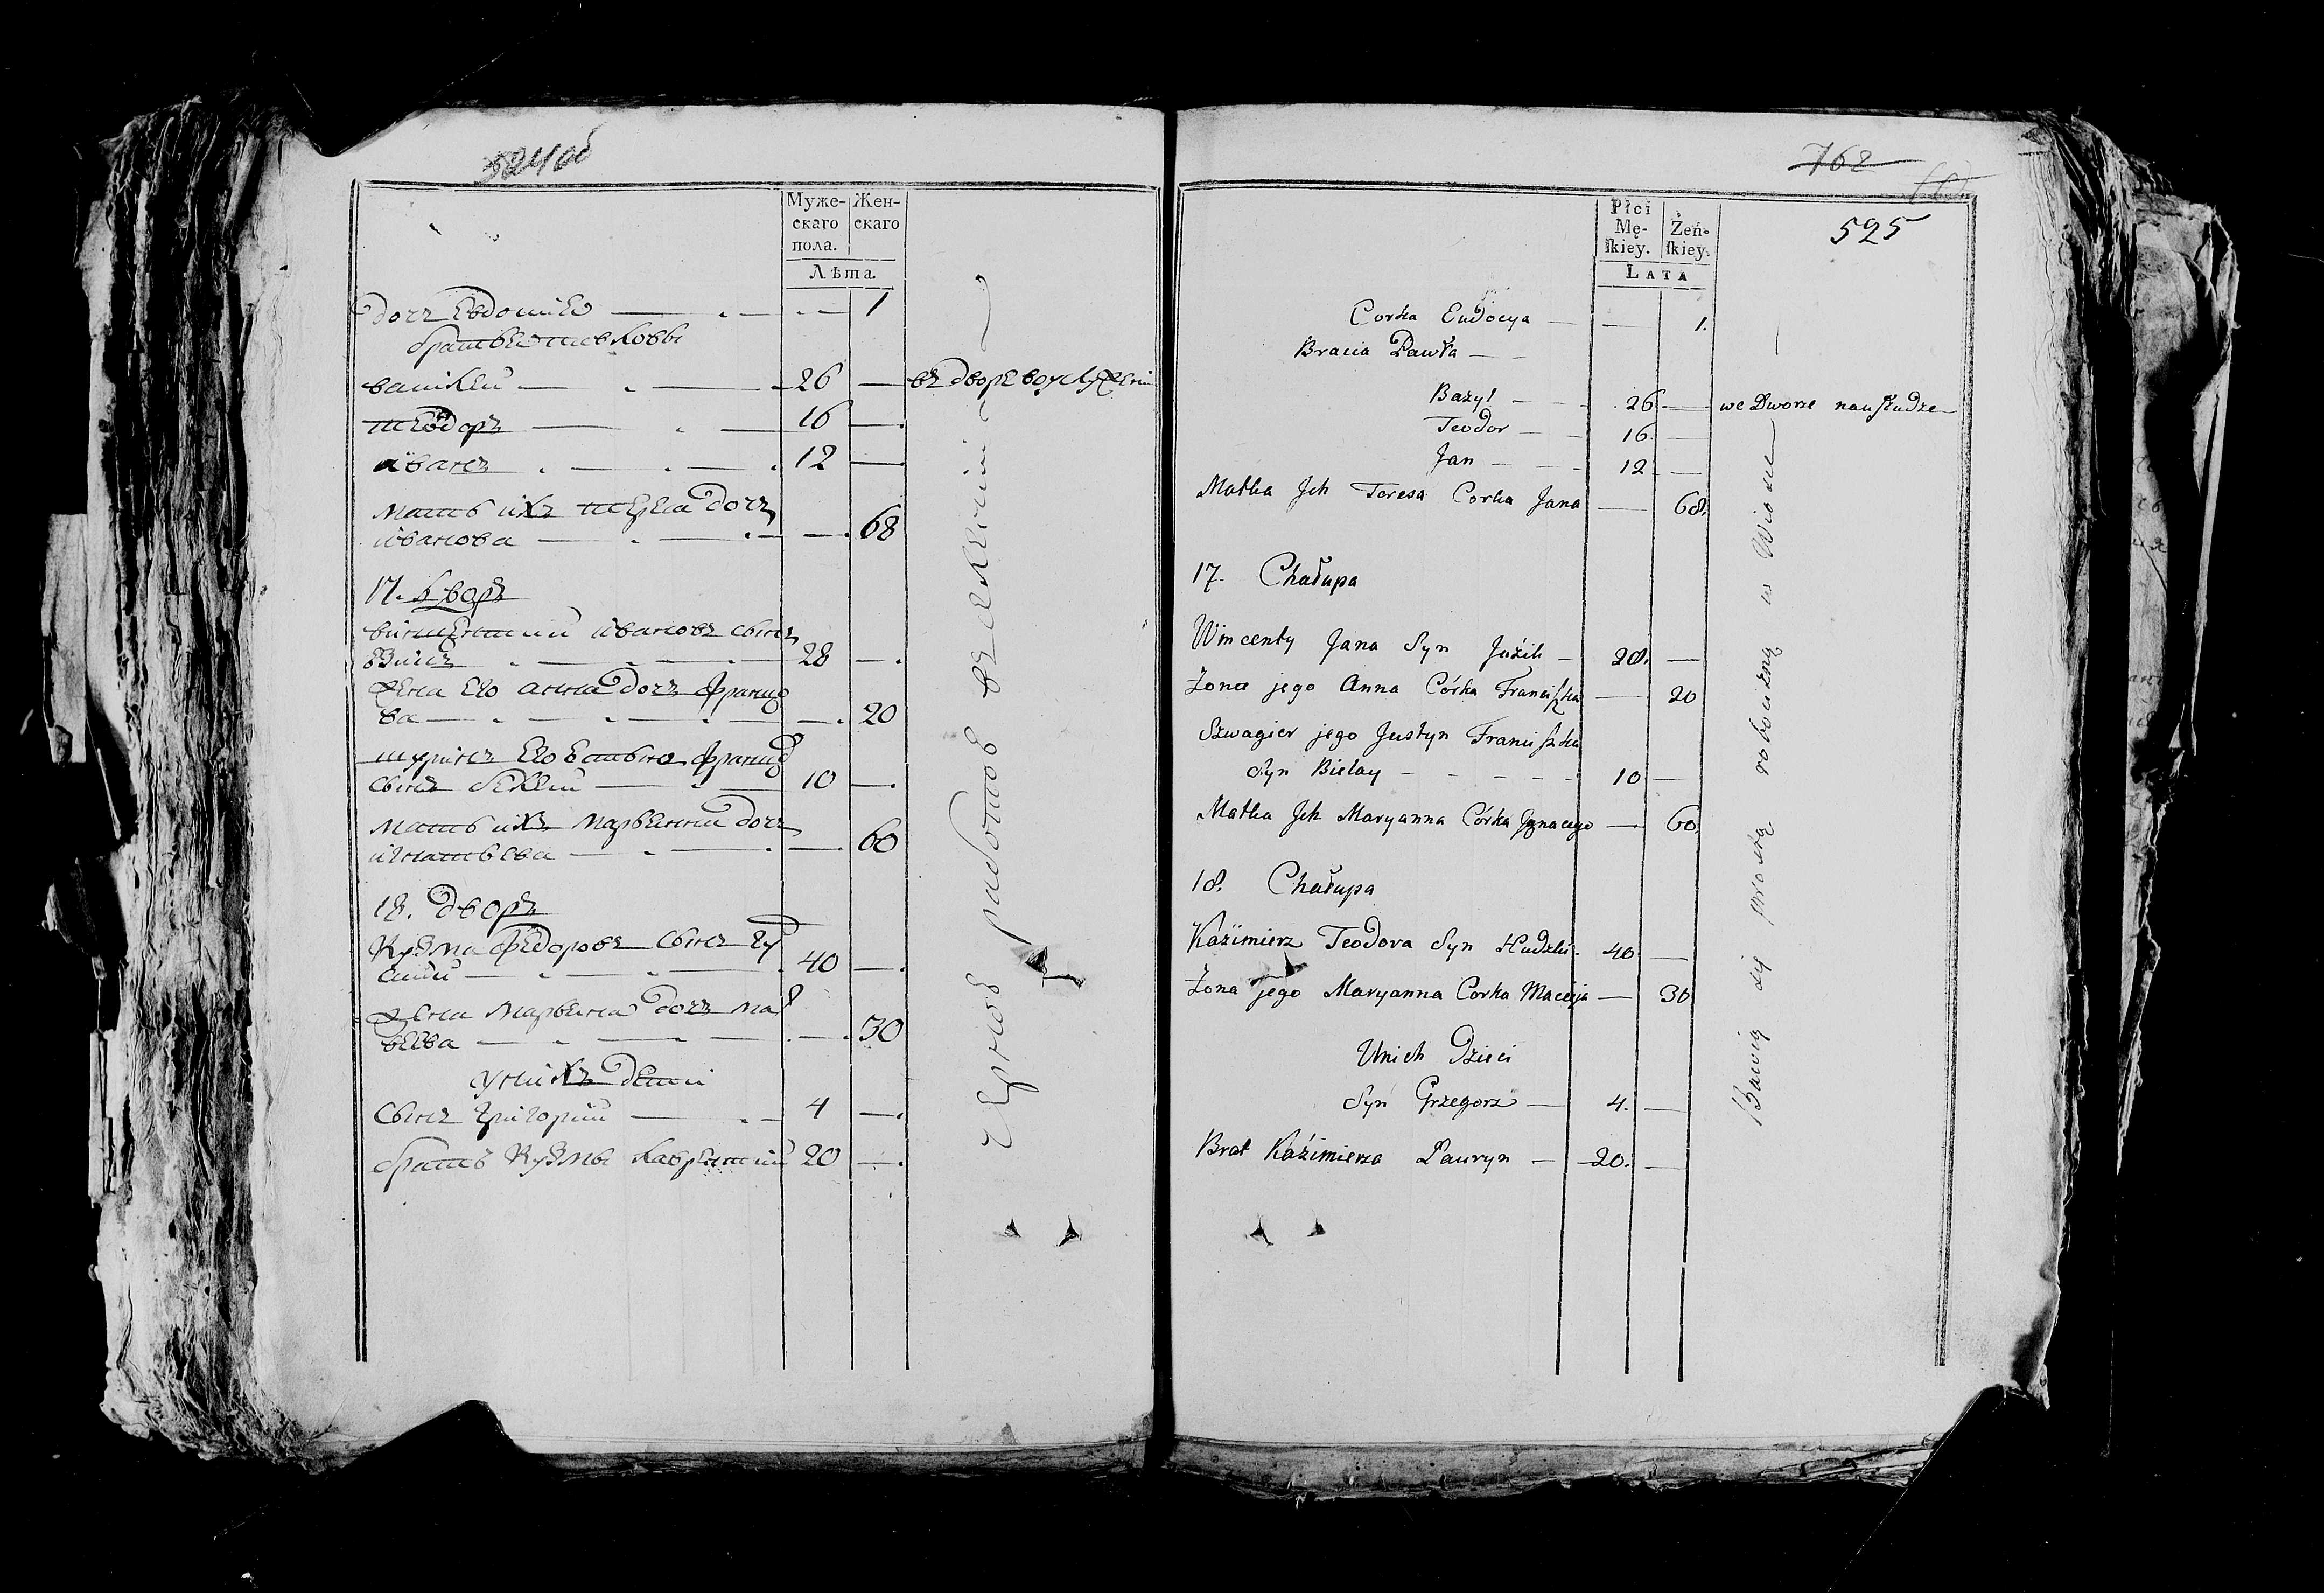 524об
Муже-
скаго
пола.
Жен-
скаго
Лѣта
дочь Евдокия 1
братья Павловы
василей 26 въ дворе воуслужении
теодоръ 16
иванъ 12
мать ихъ тереса дочь
иванова 68
17. дворъ
винцентий ивановъ сынъ
28
жена его анна дочь францо
ва 20
шуринъ его францо
сынъ 10
мать ихъ марьянна дочь
игнатьева 60
18. дворъ
Кузма федоровъ сынъ гу
40
жена марьяна дочь мат
веева 30
у них дети
сынъ григорий 4
братъ Кузмы 20
работою
762
525
Płci
Mę-
ſkiey.
Żeń-
ſkiey.
LATA
Corka Eudocya 1.
Bracia Pawła
Bazyl 26 we Dworze na usłudze
Teodor 16.
Jan 12
Matka Jch Teresa Corka Jana 68.
17. Chałupa
Wincenty Jana Syn Juzik 28.
Żona jego Anna Córka Franciszka 20
Szwagier jego Justyn Franciszka
Syn Bielay 10
Matka Jch Maryanna Córka Jgnacego 60.
18. Chałupa
Kaźimierz Teodora Syn Hudzki 40
Żona jego Maryanna Corka Macieja 30
Unich Dzieci
Syn Grzegorz 4.
Brat Kaźimierza Lawryn 20.
Bawią się prostą robocizną w Wiosce